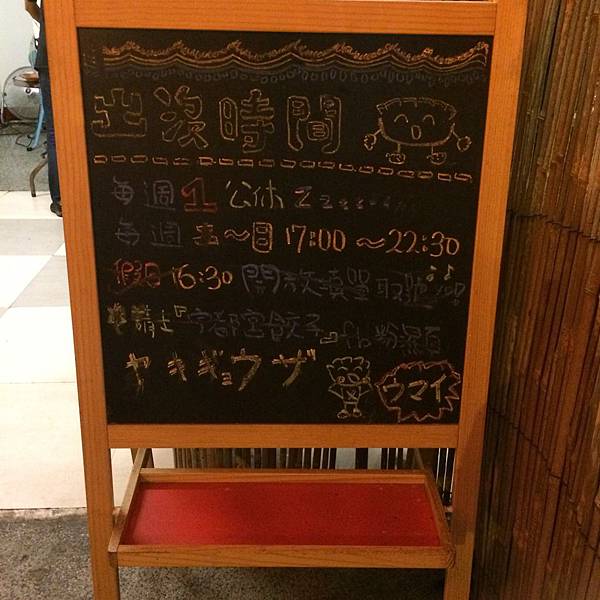 出沒時間
每週1公休 Zzzz
每週去～日 17:00～22:30
假日16:30 開放現場取號
申請士『宇都宮餃子』fb粉絲頁
ヤキギョウザ
ウマイ